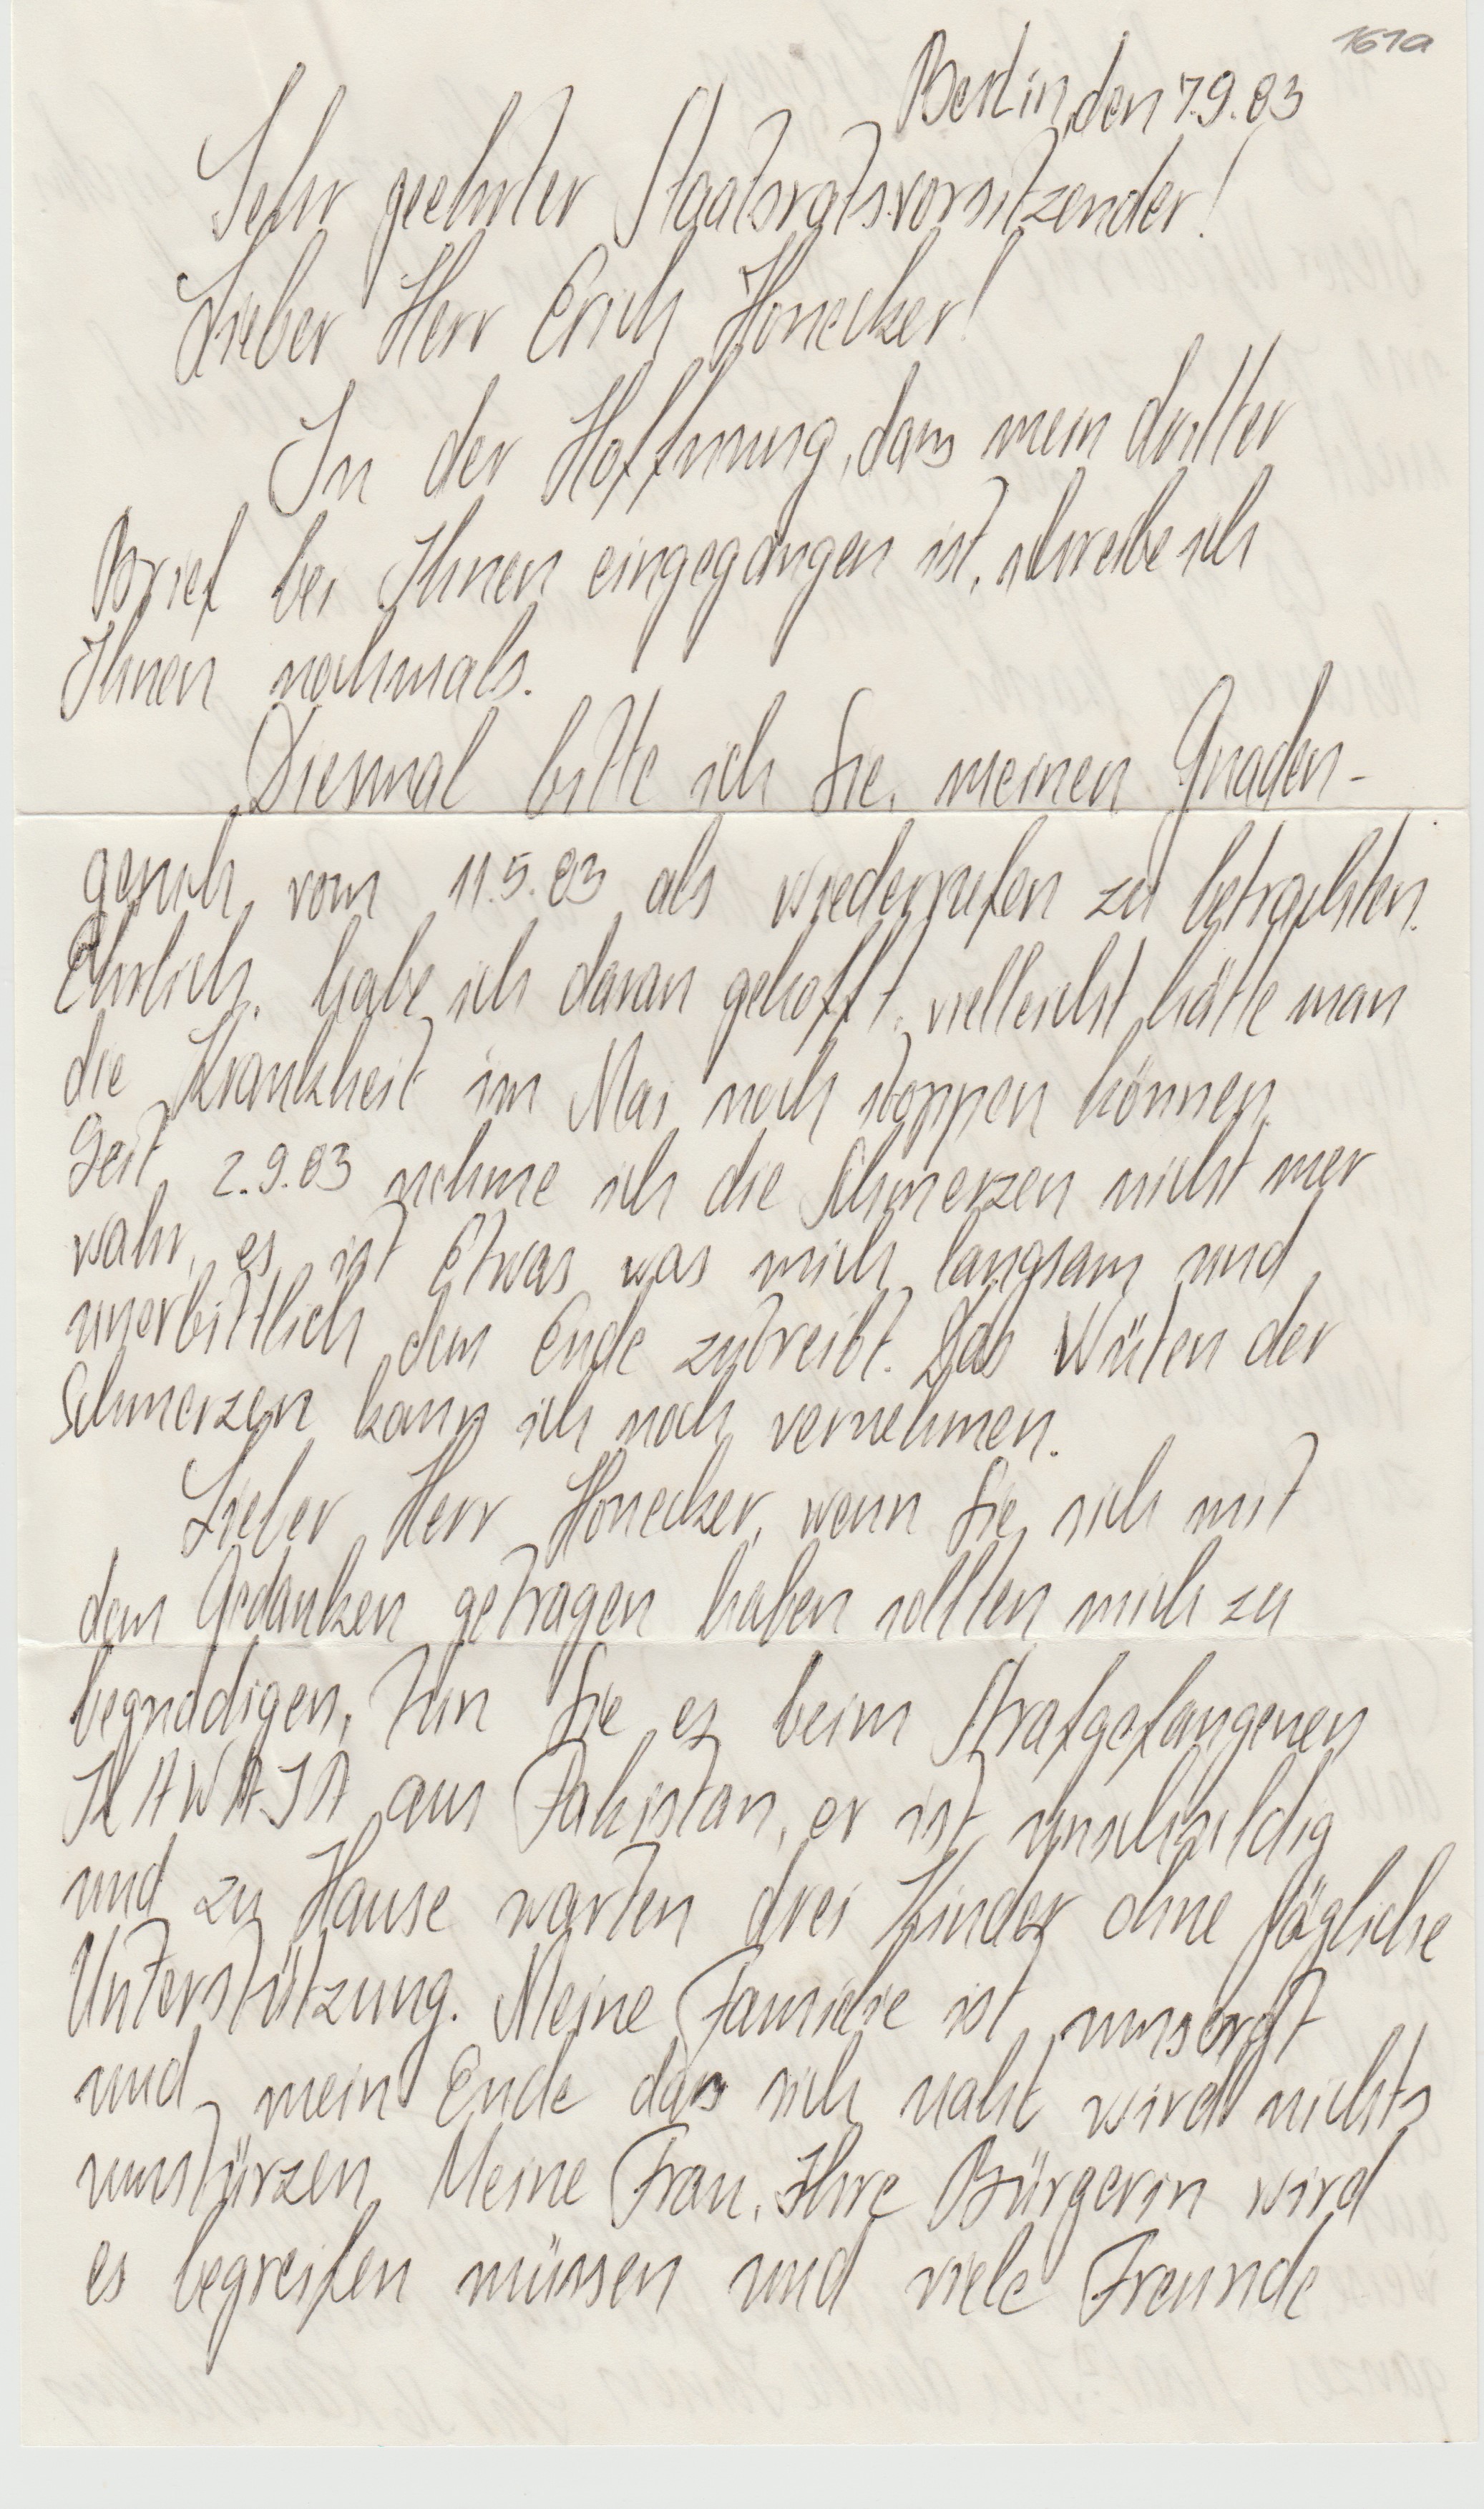 161a
Berlin, den 7.9.83
Sehr geehrter Staatsratsvorsitzender!
Lieber Herr Erich Honecker!
In der Hoffnung, dass mein dritter
Brief bei Ihnen eingegangen ist, schreibe ich
Ihnen nochmals.
Diesmal bitte ich Sie, meinen Gnaden-
gesuch vom 11.5.83 als wiederrufen zu betrachten.
Ehrlich, habe ich daran gehofft, vielleicht hätte man
die Krankheit im Mai noch stoppen können.
Seit 2.9.83 nehme ich die Schmerzen nicht mer
wahr, es ist Etwas was mich langsam und
unerbittlich dem Ende zutreibt. Das Wüten der
Schmerzen kann ich noch vernehmen.
Lieber Herr Honecker, wenn Sie sich mit
dem Gedanken getragen haben sollten mich zu
begnadigen, tun Sie es beim Strafgefangenen
KAWAJA aus Pakistan, er ist unschuldig
und zu Hause warten drei Kinder ohne jögliche
Unterstützung. Meine Familie ist umsorgt
und mein Ende das sich naht wird nichts
umstürzen. Meine Frau, Ihre Bürgerin wird
es begreifen müssen und viele Freunde